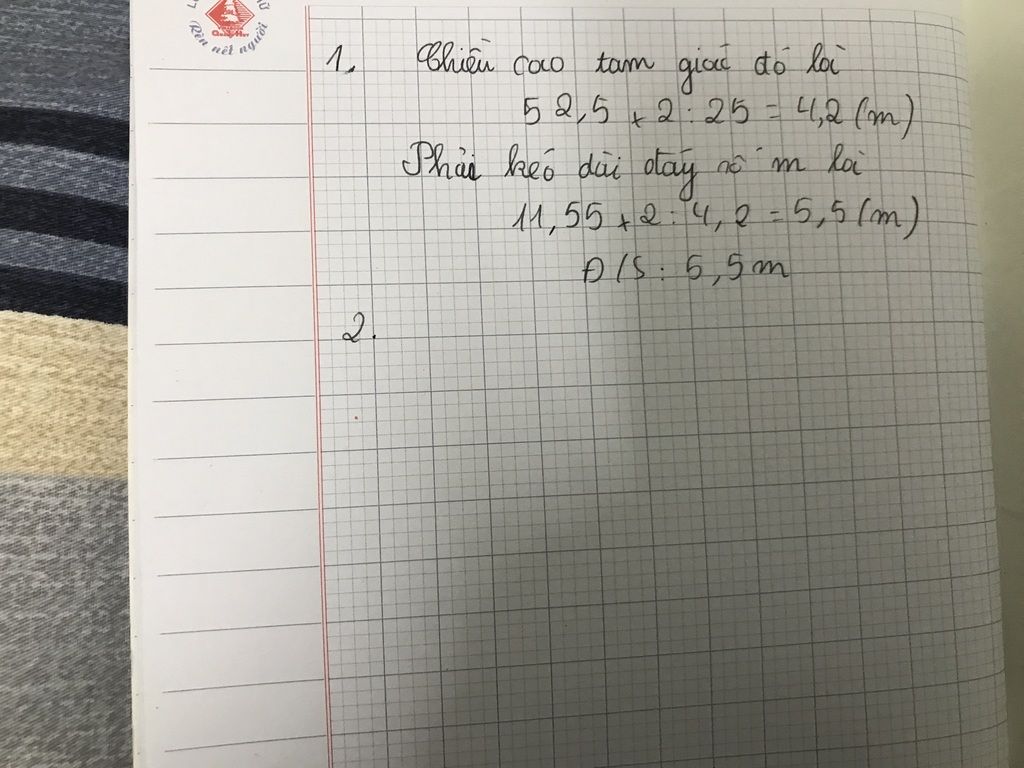 Rèn nét người
1. Chiều cao tam giác đó là
52,5 x 2 : 25 = 4,2 (m)
Phải kéo dài đáy số m là
11,55 x 2 : 4,2 = 5,5 (m)
Đ/S : 5,5 m
2.